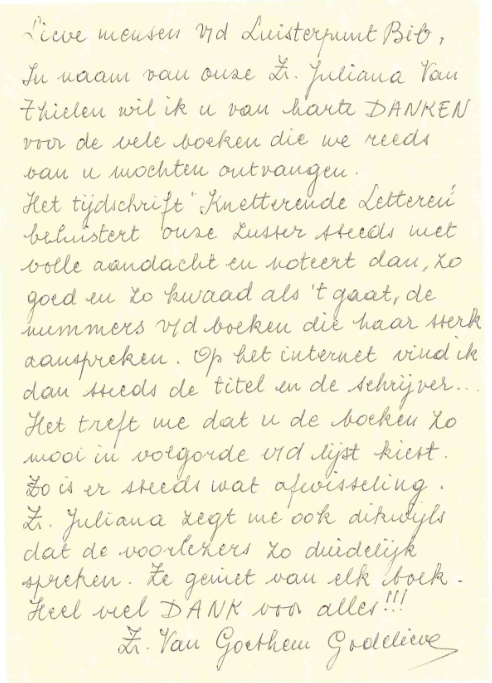 Lieve mensen v/d Luisterpunt Bib,
In naam van onze Zr. Juliana Van
Thielen wil ik u van harte DANKEN
voor de vele boeken die we reeds
van u mochten ontvangen.
Het tijdschrift "Knetterende Letteren"
beluistert onze zuster steeds met
volle aandacht en noteert dan, zo
goed en zo kwaad als 't gaat, de
nummers v/d boeken die haar sterk
aanspreken. Op het internet vind ik
dan steeds de titel en de schrijver...
Het treft me dat u de boeken zo
mooi in volgorde v/d lijst kiest.
Zo is er steeds wat afwisseling.
Zr. Juliana zegt me ook dikwijls
dat de voorlezers zo duidelijk
spreken. Ze geniet van elk boek.
Heel veel DANK voor alles!!!
Zr. Van Goethem Godelieve